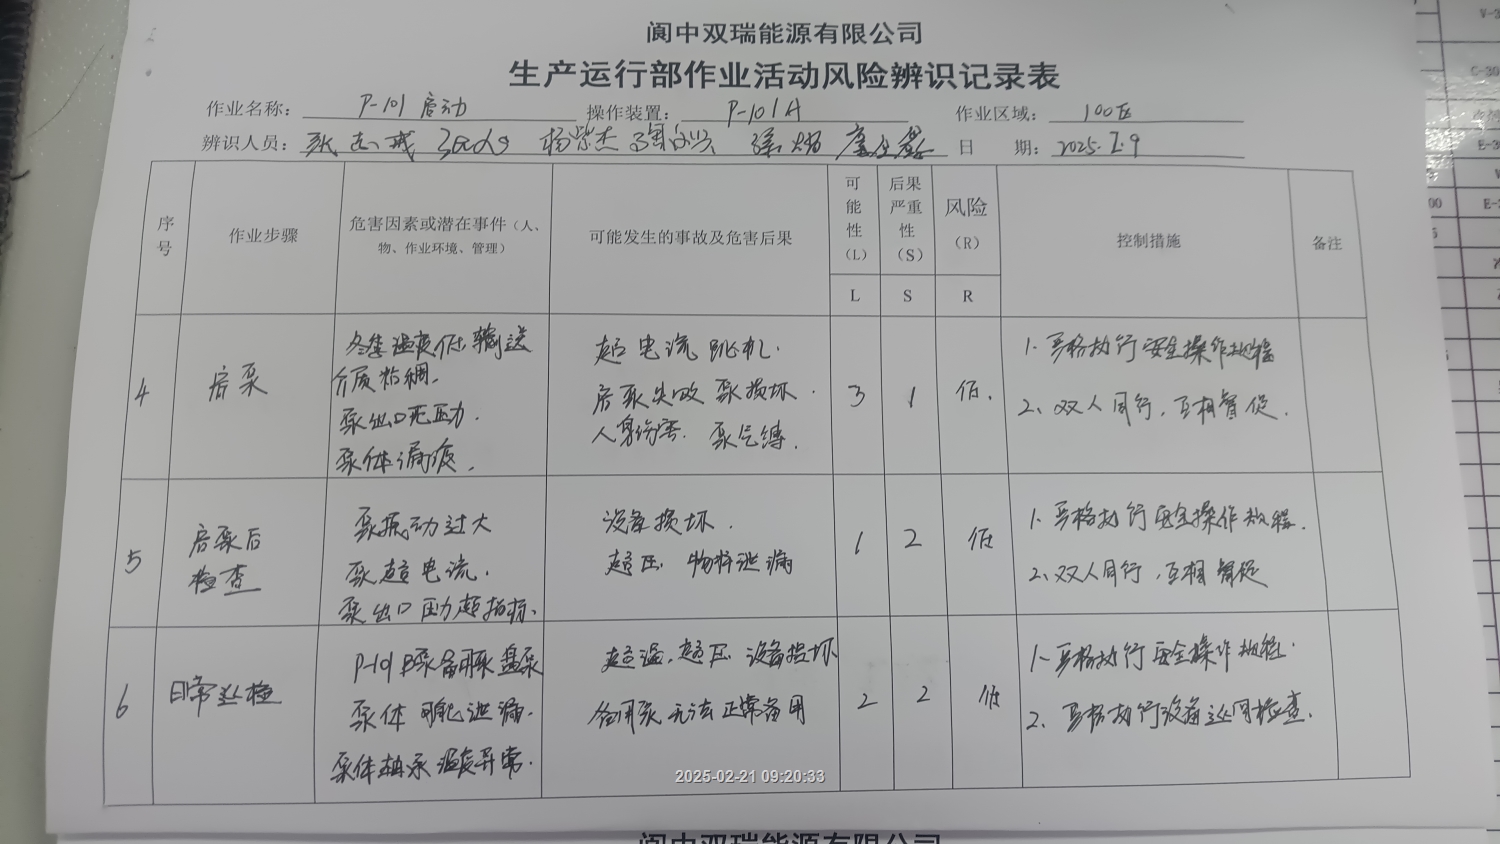 阆中双瑞能源有限公司
生产运行部作业活动风险辨识记录表
作业名称： P-101 启动 操作装置： P-101A 作业区域： 100区
辨识人员： 杨紫杰 日 期： 2025.2.9
序号 作业步骤 危害因素或潜在事件（人、物、作业环境、管理） 可能发生的事故及危害后果 可能性（L） 后果严重性（S） 风险（R） 控制措施 备注
L S R
4 启泵
冬季温度低输送
介质粘稠.
泵出口无压力.
泵体漏液.
超电流跳机.
启泵失败 泵损坏.
人身伤害. 泵气缚.
3 1 低.
1、严格执行安全操作规程
2、双人同行，互相督促.
5 启泵后
检查
泵振动过大
泵超电流.
泵出口压力超指标.
设备损坏.
超压 物料泄漏
1 2 低
1、严格执行安全操作规程.
2、双人同行，互相督促
6 日常巡检
P-101B泵备用泵盘泵
泵体 泄漏.
泵体轴承温度异常.
超温，超压 设备损坏
备用泵无法正常备用
2 2 低
1、严格执行安全操作规程.
2、严格执行设备巡回检查.
2025-02-21 09:20:33
阆中双瑞能源有限公司